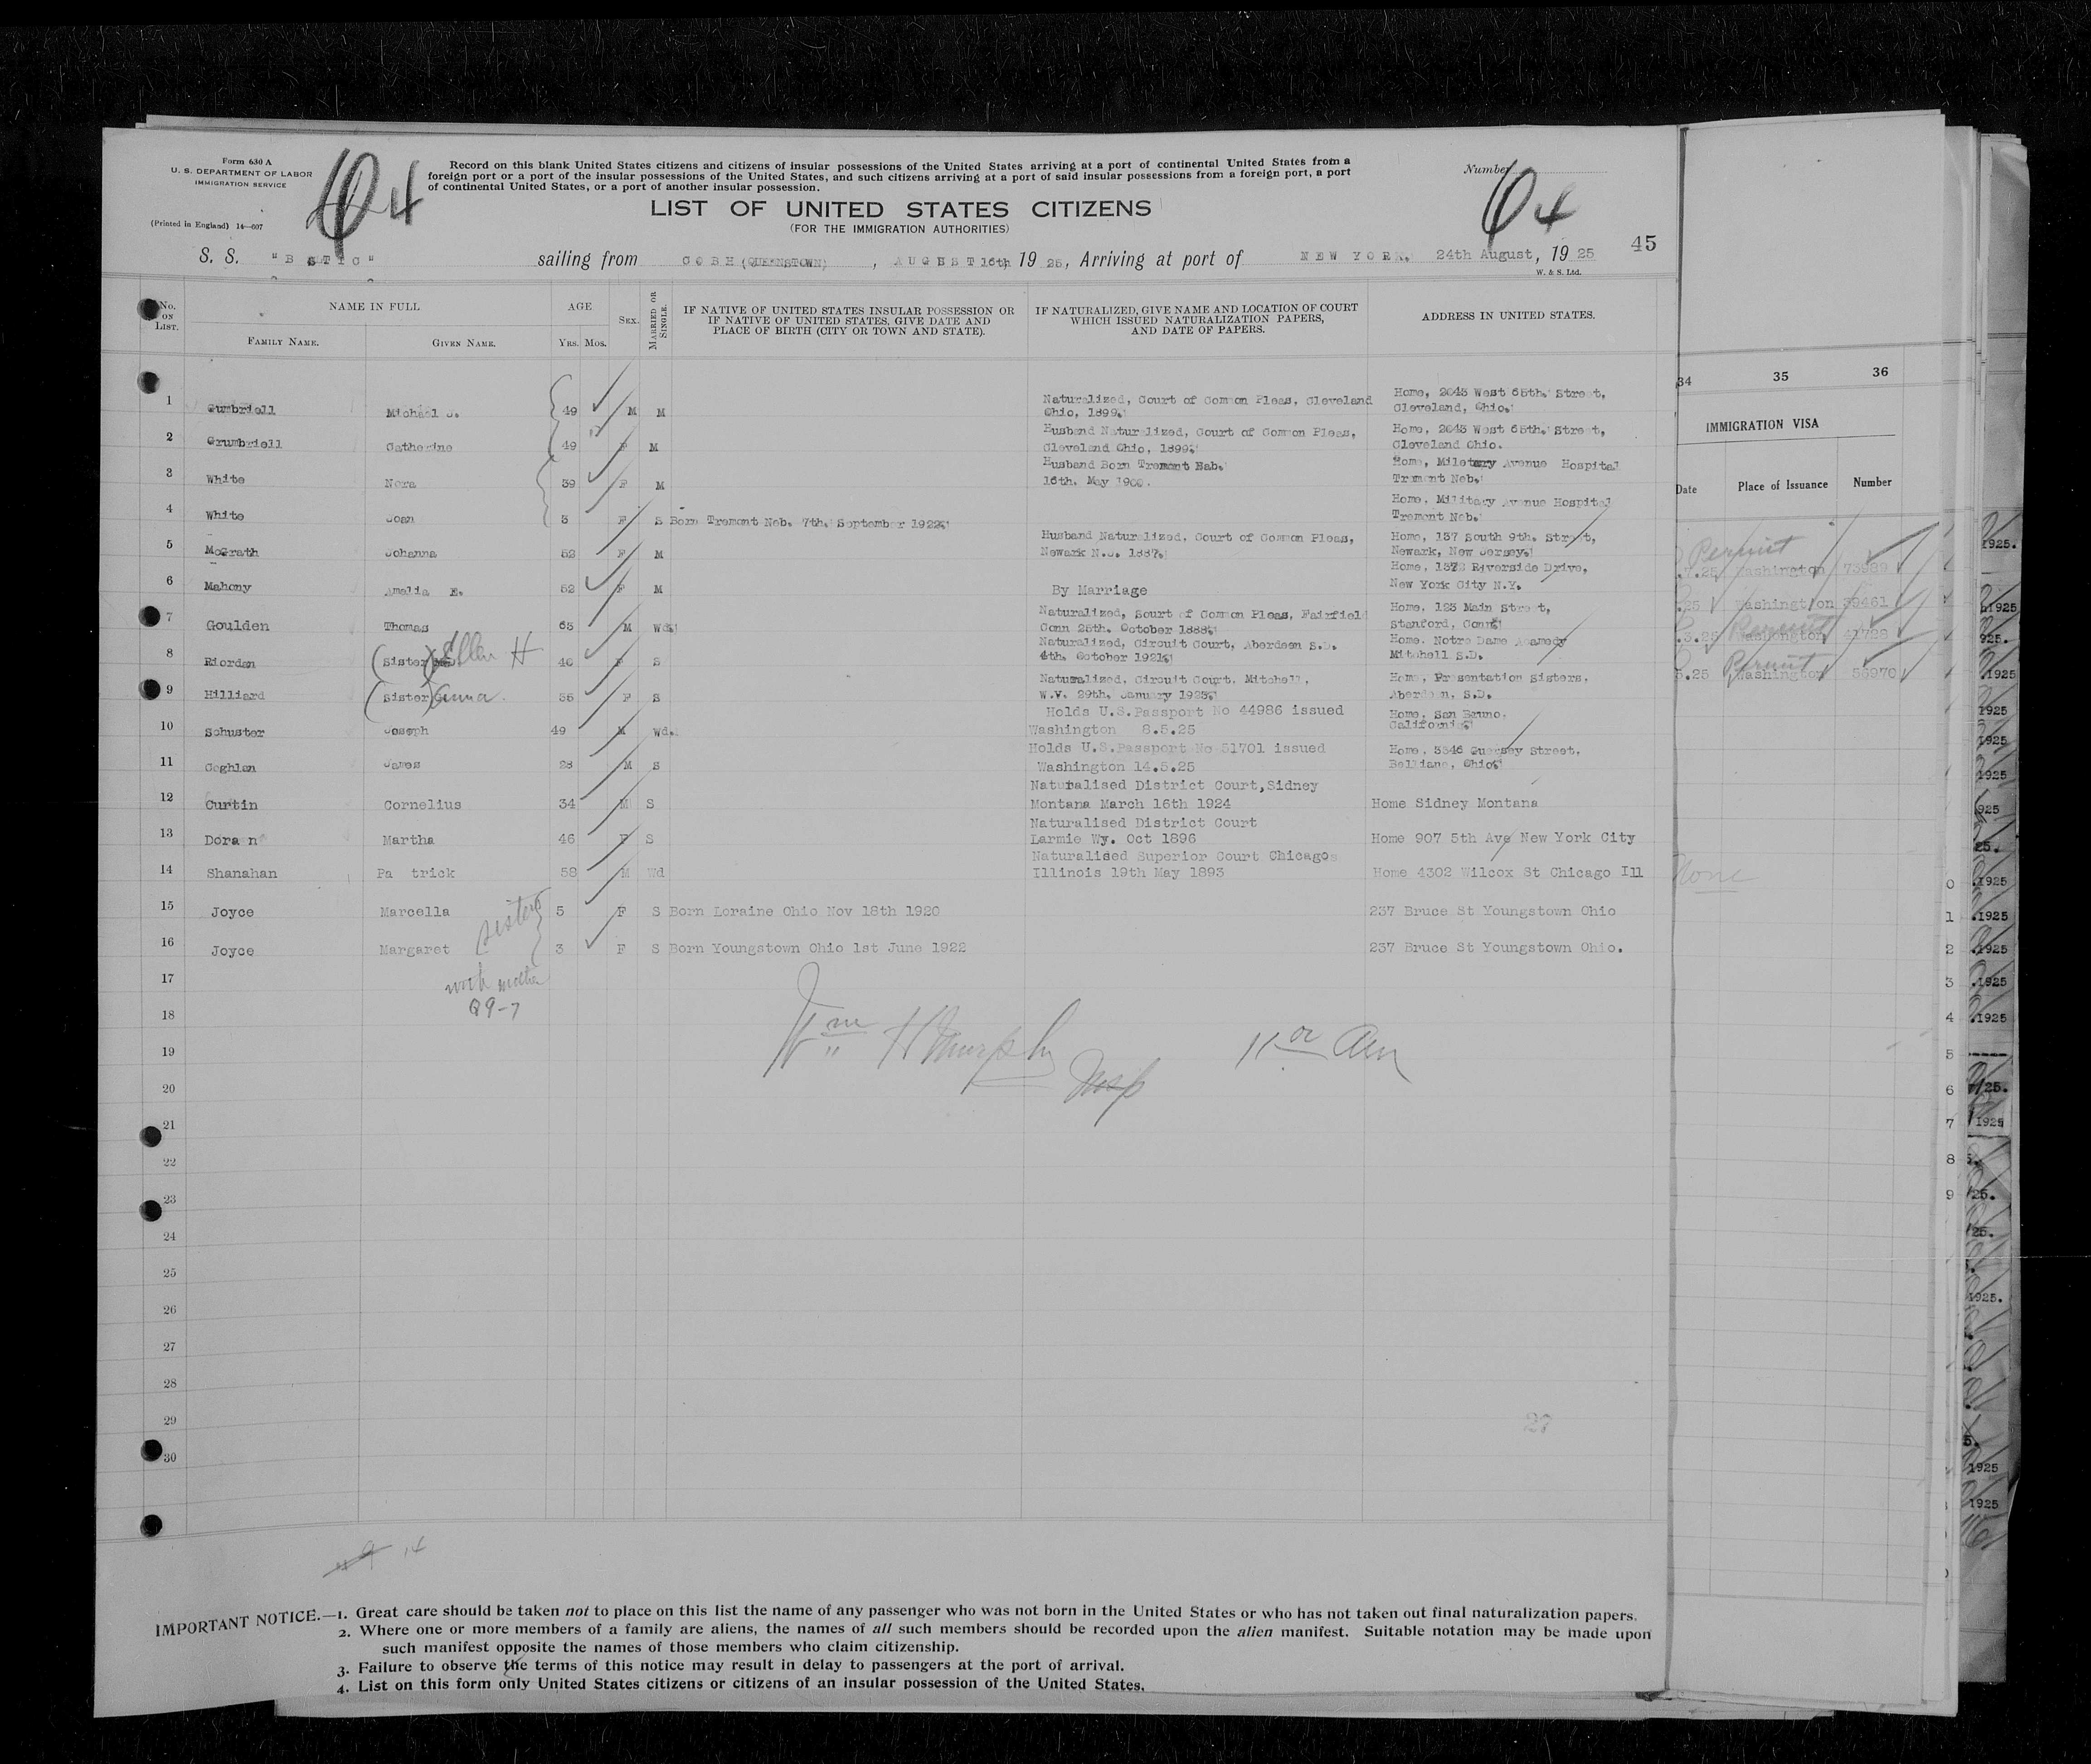 Form 630 A
U. S. DEPARTMENT OF LABOR
IMMIGRATION SERVICE
(Printed in England) 14—607
64
Record on this blank United States citizens and citizens of insular possessions of the United States arriving at a port of continental United States from a
foreign port or a port of the insular possessions of the United States, and such citizens arriving at a port of said insular possessions from a foreign port, a port
of continental United States, or a port of another insular possession.
Number
64
LIST OF UNITED STATES CITIZENS
(FOR THE IMMIGRATION AUTHORITIES)
45
S. S. "BALTIC" sailing from COBH (QUEENSTOWN), AUGUST 16th, 19 25, Arriving at port of NEW YORK. 24th August, 19 25
W. & S. Ltd.
No. ON LIST.
NAME IN FULL
FAMILY NAME.
GIVEN NAME.
AGE
YRS. MOS.
SEX.
MARRIED OR SINGLE.
IF NATIVE OF UNITED STATES INSULAR POSSESSION OR
IF NATIVE OF UNITED STATES, GIVE DATE AND
PLACE OF BIRTH (CITY OR TOWN AND STATE).
IF NATURALIZED, GIVE NAME AND LOCATION OF COURT
WHICH ISSUED NATURALIZATION PAPERS,
AND DATE OF PAPERS.
ADDRESS IN UNITED STATES.
1 Gumbriell Michael J. 49 M M Naturalized, Court of Common Pleas, Cleveland Home, 2043 West 65th. Street,
Ohio, 1899. Cleveland, Ohio.
2 Grumbriell Catherine 49 F M Husband Naturalized, Court of Common Pleas, Home, 2043 West 65th. Street,
Cleveland Ohio, 1899. Cleveland Ohio.
3 White Nora 39 F M Husband Born Tremont Nab. Home, Miletary Avenue Hospital
16th. May 1900. Tremont Neb.
4 White Joan 3 F S Born Tremont Neb. 7th. September 1922. Home, Military Avenue Hospital
Tremont Neb.
5 McGrath Johanna 52 F M Husband Naturalized, Court of Common Pleas, Home, 137 South 9th. Street,
Newark N.J. 1887. Newark, New Jersey.
6 Mahony Amalia E. 52 F M By Marriage Home, 1372 Riverside Drive,
New York City N.Y.
7 Goulden Thomas 63 M Wd. Naturalized, Court of Common Pleas, Fairfield Home, 123 Main Street,
Conn 25th. October 1888. Stanford, Conn.
8 Riordan (Sister) Ellen H 40 F S Naturalized, Circuit Court, Aberdeen S.D. Home. Notre Dame Acamedy
4th. October 1921. Mitchell S.D.
9 Hilliard (Sister) Anna. 36 F S Naturalized, Circuit Court. Mitchell, Home, Presentation Sisters,
W.V. 29th. January 1923. Aberdeen, S.D.
10 Schuster Joseph 49 M Wd. Holds U.S.Passport No 44986 issued Home, San Bruno,
Washington 8.5.25 California.
11 Coghlan James 28 M S Holds U.S.Passport No 51701 issued Home, 3346 Guersey Street,
Washington 14.5.25 Belliane, Ohio.
12 Curtin Cornelius 34 M S Naturalised District Court,Sidney
Montana March 16th 1924 Home Sidney Montana
13 Doran Martha 46 F S Naturalised District Court
Larmie Wy. Oct 1896 Home 907 5th Ave New York City
14 Shanahan Pa trick 58 M Wd Naturalised Superior Court Chicago
Illinois 19th May 1893 Home 4302 Wilcox St Chicago Ill
15 Joyce Marcella 5 F S Born Loraine Ohio Nov 18th 1920 237 Bruce St Youngstown Ohio
16 Joyce Margaret 3 F S Born Youngstown Ohio 1st June 1922 237 Bruce St Youngstown Ohio.
sisters
with mother
Q9-7
17
18
19
20
21
22
23
24
25
26
27
28
29
30
Wm H Murphy
Insp
27
14
IMPORTANT NOTICE.—1. Great care should be taken not to place on this list the name of any passenger who was not born in the United States or who has not taken out final naturalization papers.
2. Where one or more members of a family are aliens, the names of all such members should be recorded upon the alien manifest. Suitable notation may be made upon
such manifest opposite the names of those members who claim citizenship.
3. Failure to observe the terms of this notice may result in delay to passengers at the port of arrival.
4. List on this form only United States citizens or citizens of an insular possession of the United States.
34 35 36
IMMIGRATION VISA
Date Place of Issuance Number
Permit
.7.25 Washington 73989
.25 Washington 39461
Permit
.3.25 Washington 41728
Permit
.25 Washington 56970
None